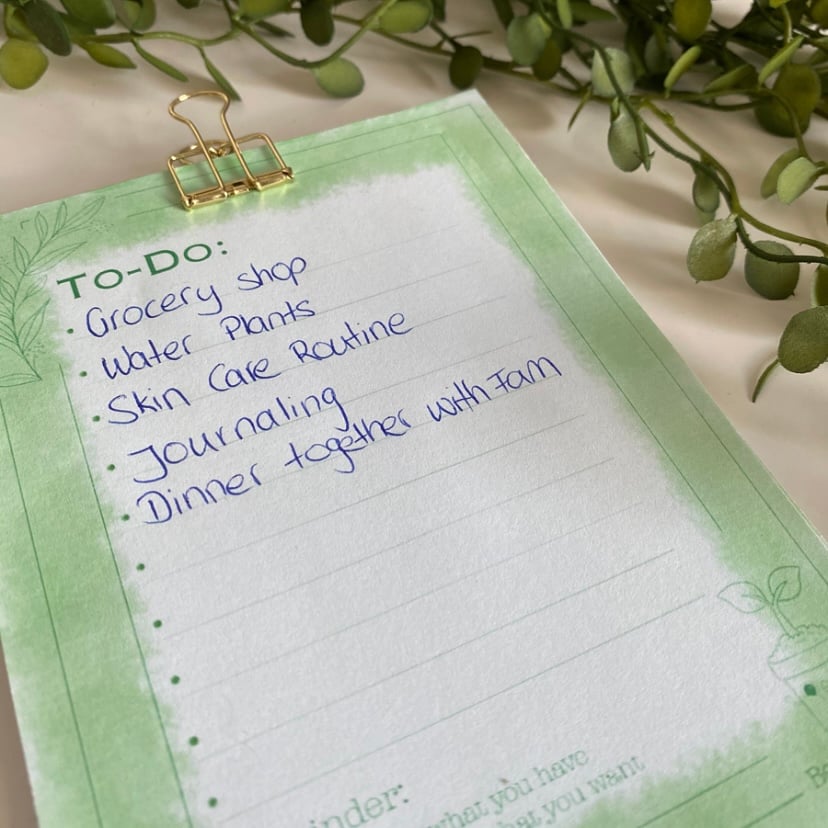 To-Do:
Grocery shop
Water Plants
Skin Care Routine
Journaling
Dinner together with Fam
what you have
what you want